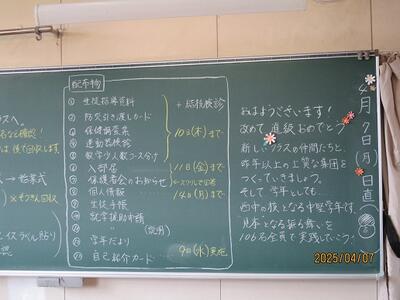 配布物
① 生徒指導資料
② 防災引き渡しカード
③ 保健調査票
④ 運動器検診
⑤ 数学少人数コース分け
⑥ 入部届
⑦ 保護者会のお知らせ
⑧ 個人情報
⑨ 生徒手帳
⑩ 就学援助申請
(説明)
学年だより
自己紹介カード
+ 結核検診
10日(木)まで
11日(金)まで
14日(月)まで
9日(水)実施
おはようございます!
改めて進級おめでとう
新しいクラスの仲間たちと、
昨年以上の上質な集団を
つくっていきましょう。
そして学年としても、
西中の核となる中堅学年です。
見本となる振る舞いを
106名全員で実践していこう。
4月7日(月)
日直
→ 始業式
2025/04/07